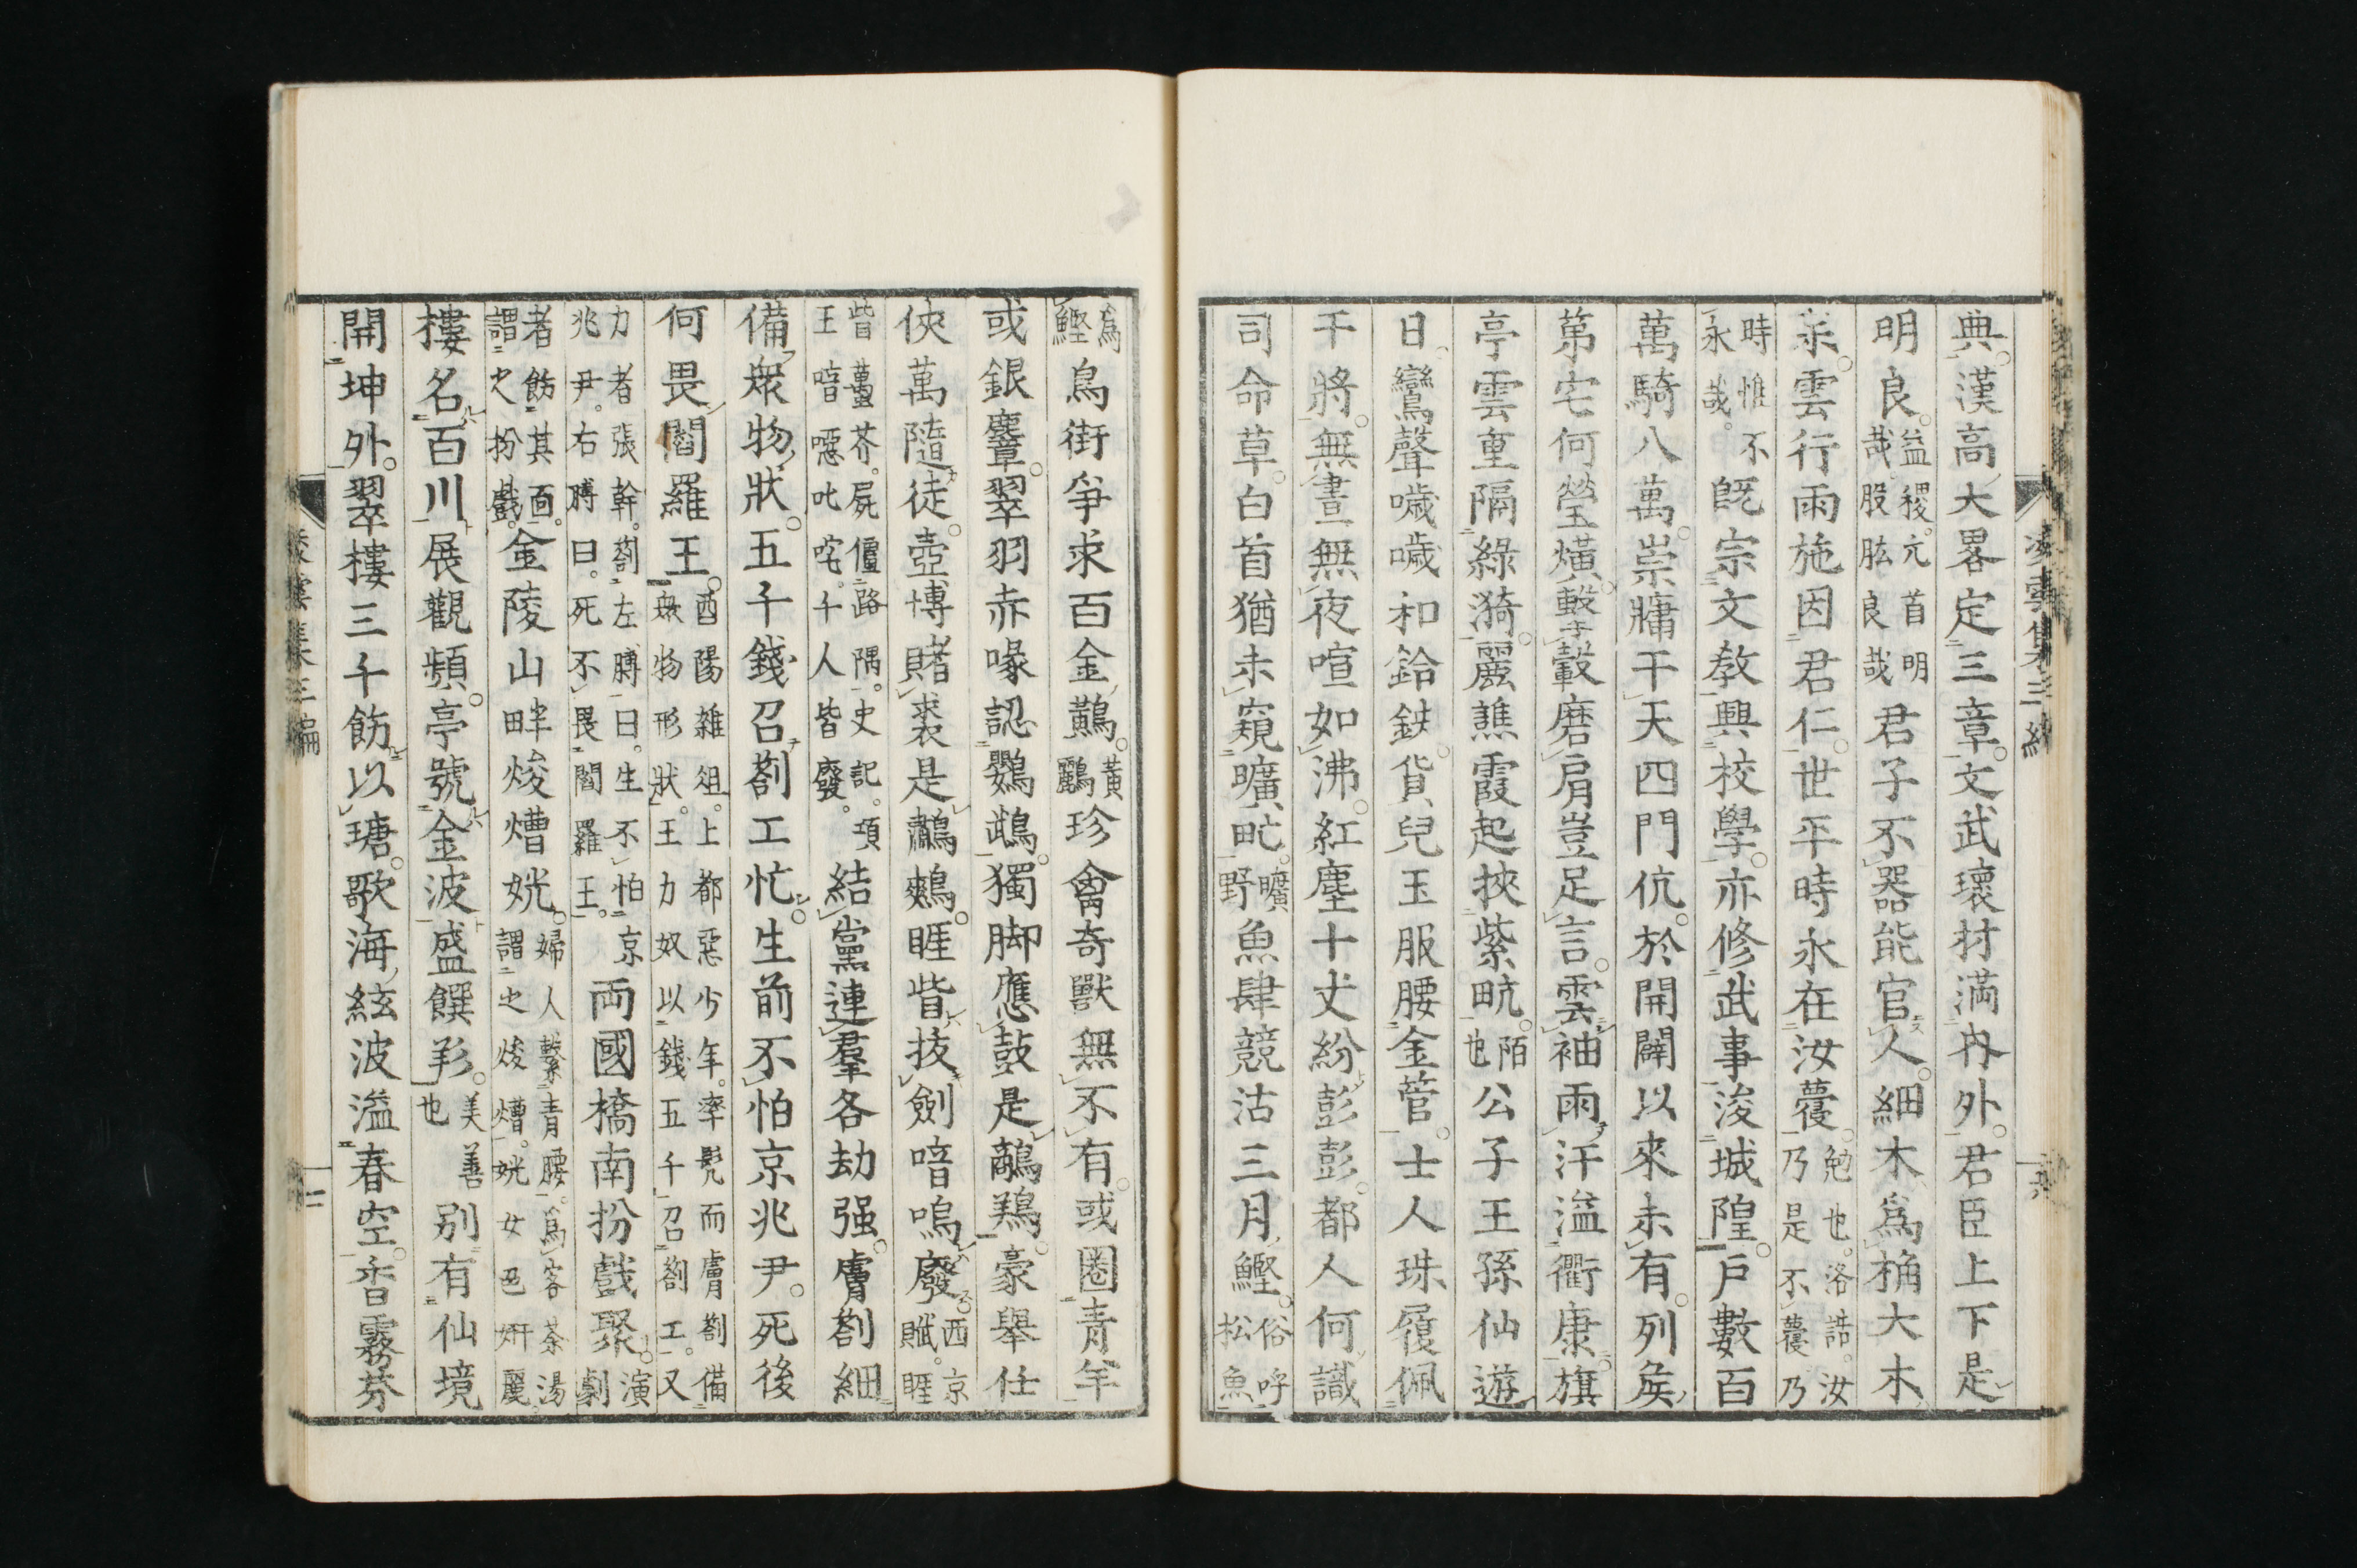 典。漢高大畧定三章。文武壞材満冉外。君臣上下是
明良。益稷。元首明哉股肱良哉君子不器能官人。細木爲桷大木
宗。雲行雨施因君仁。世平時永在汝蘉。勉也。洛誥。汝乃是不蘉乃
時惟不永哉。既宗文教興校學。亦修武事浚城隍。戸數百
萬騎八萬。崇牗干天四門伉。於開闢以來未有。列矦
第宅何瑩熿。轂擊轂磨肩豈足言。雲袖雨汗溢衢康。旗
亭雲重隔綠漪。麗譙霞起挾紫畮。陌也公子王孫仙遊
日。鸞聲噦噦和鈴鉠。貨兒玉服腰金菅。士人珠履佩
干將。無晝無夜喧如沸。紅塵十丈紛彭彭。都人何識
司命草。白首猶未窺曠甿。曠野魚肆競沽三月鰹。俗呼松魚
爲鰹鳥街爭求百金鷬。黃鸝珍禽奇獸無不有。或圈青羊
或銀麞。翠羽赤喙認鸚鵡。獨脚應鼓是鷸鷞。豪舉任
俠萬隨徒。壺博賭裘是鷫鷞。睚眥拔劍喑嗚廢。西京賦。睚
眥蠆芥。屍僵路隅。史記。項王喑噁叱咤。千人皆廢。結黨連羣各劫强。膚劄細
備衆物狀。五千錢召劄工忙。生前不怕京兆尹。死後
何畏閻羅王。酉陽雜俎。上都惡少年。率髠而膚劄備衆物形狀。王力奴以錢五千召劄工。又
力者張幹。劄左膊曰。生不怕京兆尹。右膊曰。死不畏閻羅王。両國橋南扮戲聚。演劇
者飭其面。謂之扮戲。金陵山畔焌熸姯。婦人繫青腰。爲客茶湯謂之焌熸。姯女色姸麗
樓名百川展觀頻。亭號金波盛饌羕。美善也別有仙境
開坤外。翠樓三千飭以瑭。歌海絃波溢春空。香霧芬
三編
集三編